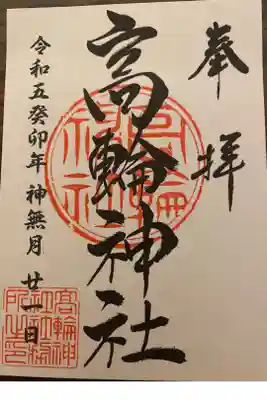 奉拝
高輪神社
令和五癸卯年 神無月 廿一日
高輪神社
高輪神社社務所之印